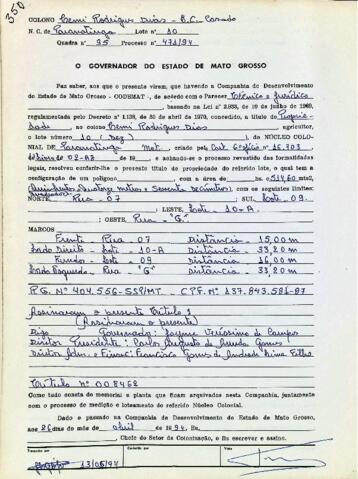 350
COLONO Cemi Rodrigues Dias - B.C. Casado
N. C. de Paranatinga Lote nº 10
Quadra nº 35 Processo nº 471/94
O GOVERNADOR DO ESTADO DE MATO GROSSO
Faz saber, aos que o presente virem, que havendo a Companhia de Desenvolvimento
do Estado de Mato Grosso - CODEMAT -, de acordo com o Parecer Técnico e Jurídico
, baseado na Lei nº 2.833, de 19 de junho de 1968,
regulamentada pelo Decreto nº 1.138, de 30 de abril de 1970, concedido, a título de Proprie-
dade ao colono Cemi Rodrigues Dias agricultor,
o lote número 10 (Dez) do NÚCLEO COLO-
NIAL DE Paranatinga Mat. criado pelo
de 19 e achando-se o processo revestido das formalidades
legais, resolveu conferir-lhe o presente título de propriedade do referido lote, o qual tem a
configuração de um polígono com a área de 514,60 mts2
Quinhentos, Quatorze metros e Sessenta decímetros, com os seguintes limites:
NORTE Rua - 07 ; SUL Lote - 09.
; LESTE, Lote - 10-A
; OESTE, Rua - "G".
MARCOS
Frente - Rua - 07 Distância - 15,00m
Lado Direito - Lote - 10-A Distância - 33,20m
Fundo - Lote - 09 Distância - 16,00m
Lado Esquerdo - Rua "G" Distância - 33,20m
R.G. Nº 404.556-SSP/MT. CPF. Nº 137.843.581-87
Assinaram o presente Título:
(Assinaram o presente)
Governador: Jayme Veríssimo de Campos
Diretor Presidente: Carlos Augusto de Arruda Gomes
Título nº 008468
Como tudo consta do memorial e planta que ficam arquivados nesta Companhia, juntamente
com o processo de medição e loteamento do referido Núcleo Colonial.
Dado e passado na Companhia de Desenvolvimento do Estado de Mato Grosso,
aos 26 dias do mês de abril de 1994. Eu,
Chefe do Setor da Colonização, o fiz escrever e assino.
13/05/94